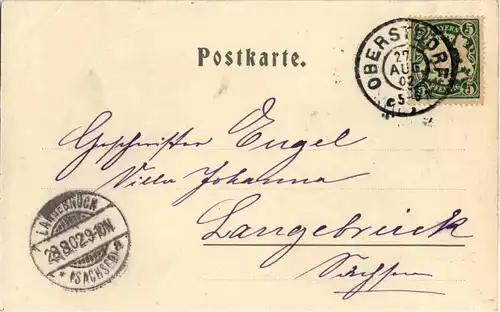 Postkarte.
OBERSTDORF
27
AUG
02
5
5
BAYERN
5
PFENNIG
Geschwister Engel
Villa Johanna
Langebrück
Sachsen
LANGEBRÜCK
28.8.02.9-10N
* (SACHSEN) a